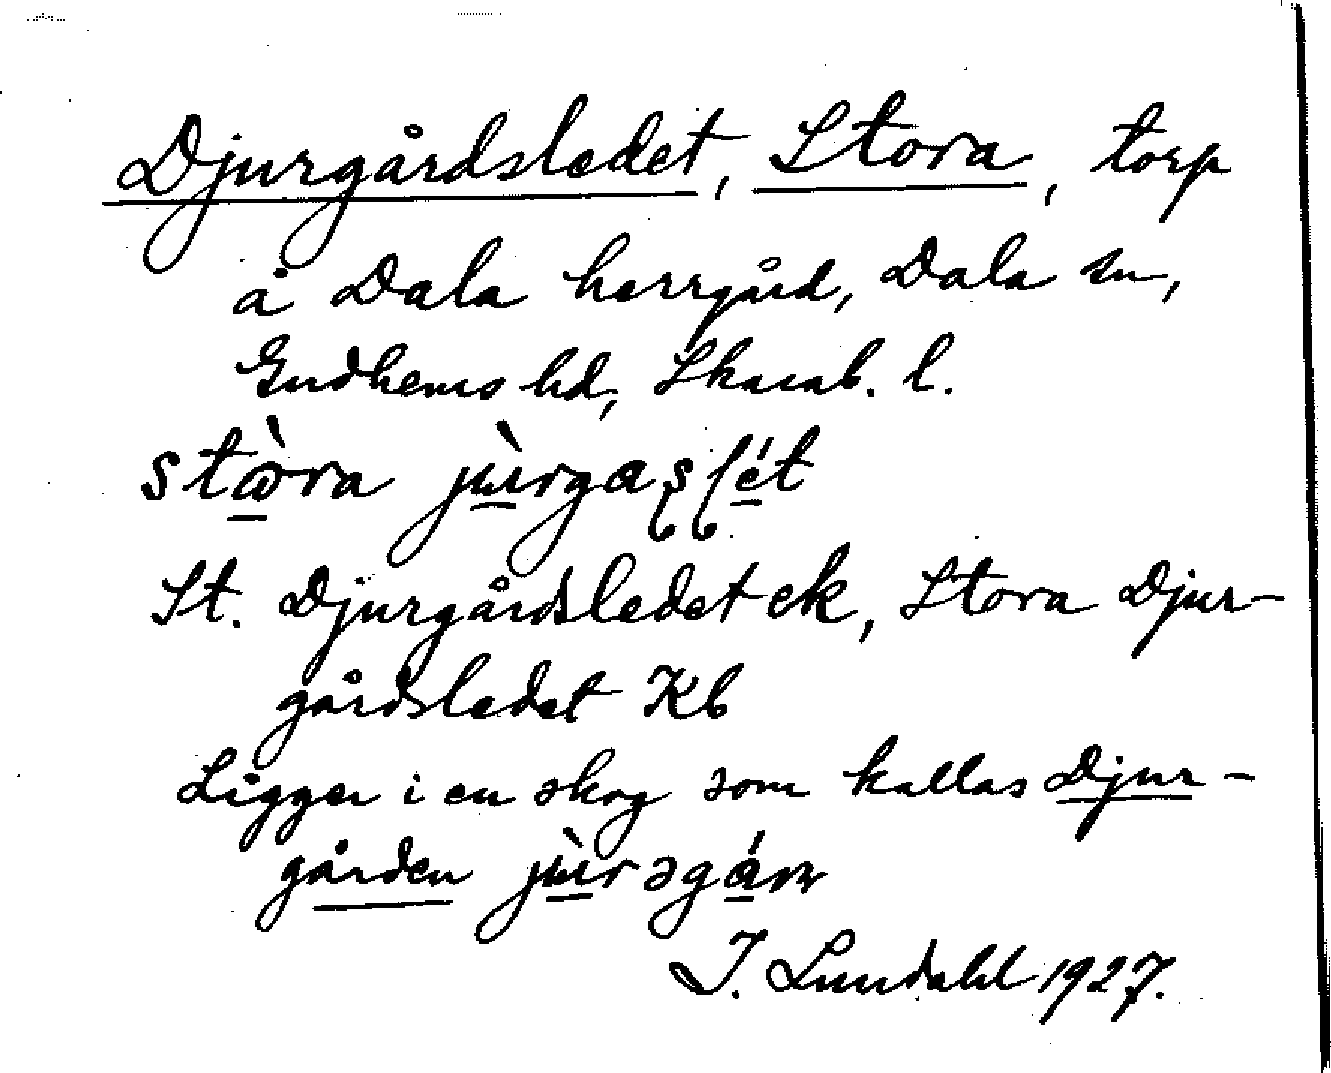 Djurgårdsledet, Stora, torp
å Dala herrgård, Dala sn,
Gudhems hd, Skarab. l.
stɷ̀ra jùrgaʂɭét
St. Djurgårdsledet ek, Stora Djur-
gårdsledet Kb
Ligger i en skog som kallas Djur-
gården jùrəgán
J. Lundahl 1927.